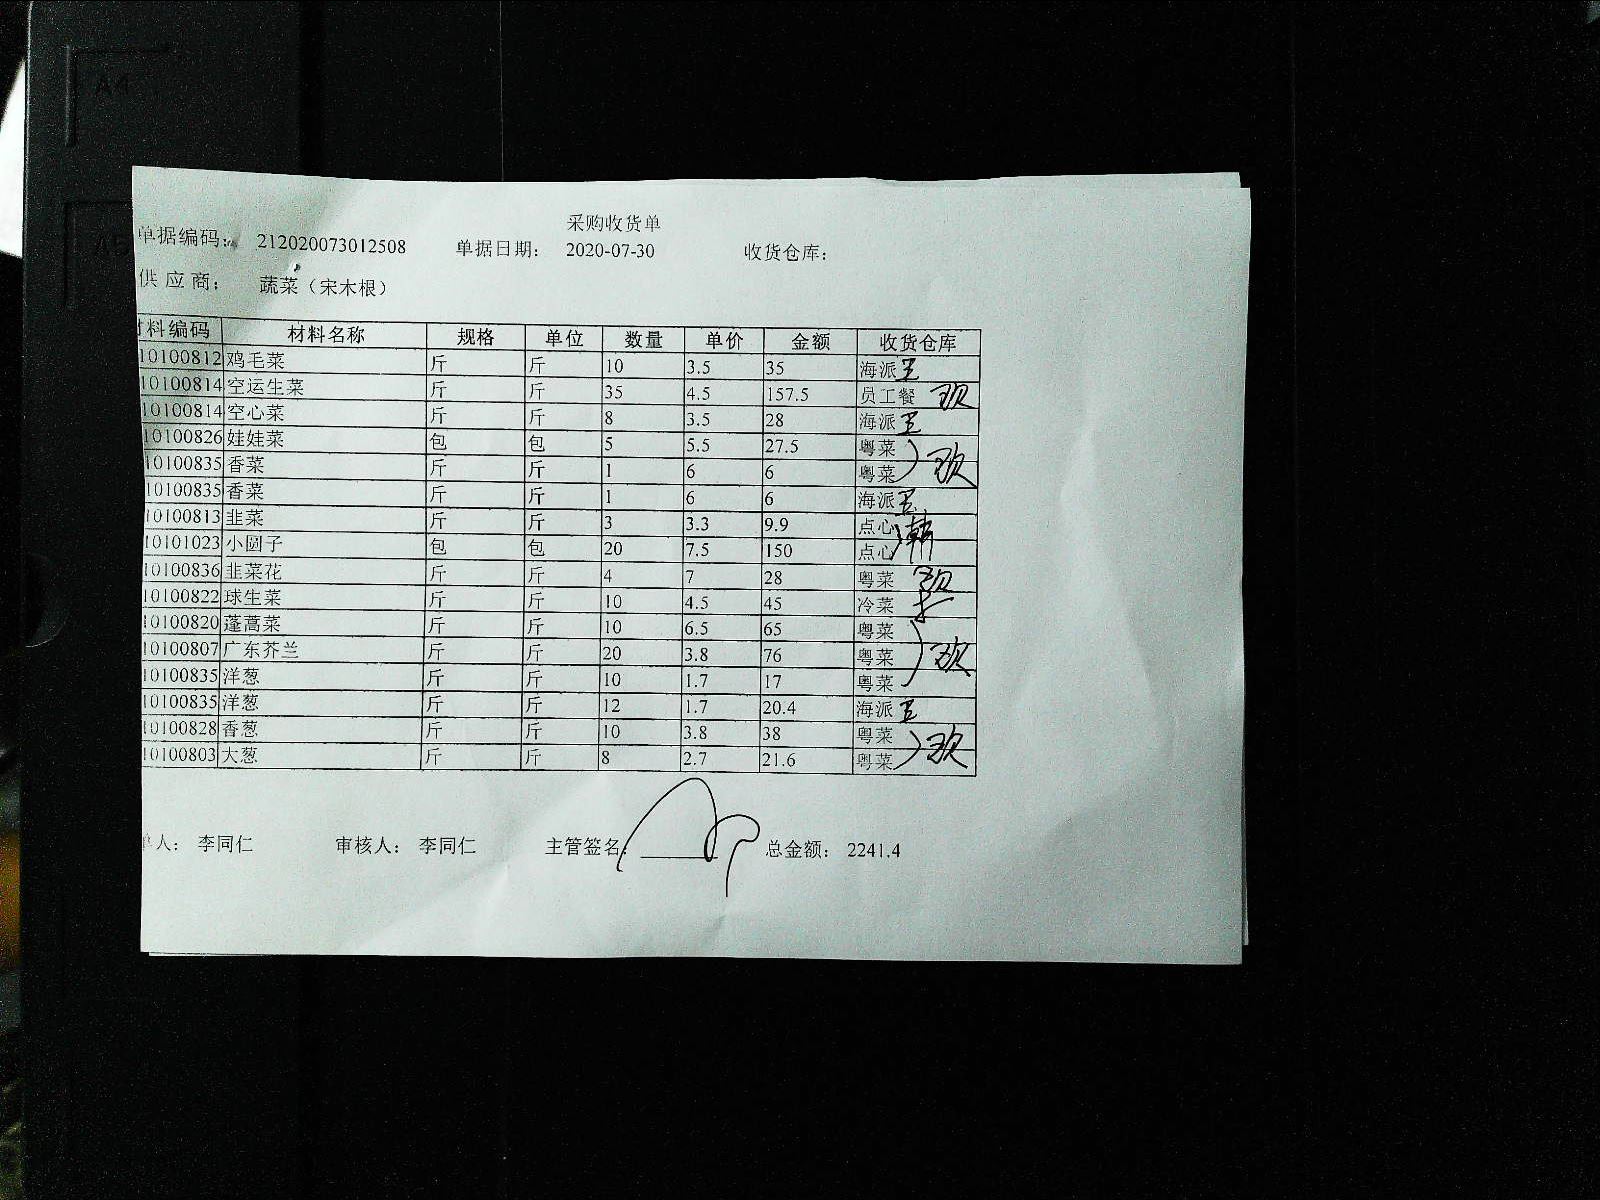 A4
A5
采购收货单
单据编码： 212020073012508 单据日期： 2020-07-30 收货仓库：
供 应 商： 蔬菜（宋木根）
材料编码 材料名称 规格 单位 数量 单价 金额 收货仓库
10100812 鸡毛菜 斤 斤 10 3.5 35 海派 王
10100814 空运生菜 斤 斤 35 4.5 157.5 员工餐
10100814 空心菜 斤 斤 8 3.5 28 海派 王
10100826 娃娃菜 包 包 5 5.5 27.5 粤菜
10100835 香菜 斤 斤 1 6 6 粤菜
10100835 香菜 斤 斤 1 6 6 海派 王
10100813 韭菜 斤 斤 3 3.3 9.9 点心
10101023 小圆子 包 包 20 7.5 150 点心 韩
10100836 韭菜花 斤 斤 4 7 28 粤菜
10100822 球生菜 斤 斤 10 4.5 45 冷菜
10100820 蓬蒿菜 斤 斤 10 6.5 65 粤菜
10100807 广东芥兰 斤 斤 20 3.8 76 粤菜
10100835 洋葱 斤 斤 10 1.7 17 粤菜
10100835 洋葱 斤 斤 12 1.7 20.4 海派 王
10100828 香葱 斤 斤 10 3.8 38 粤菜
10100803 大葱 斤 斤 8 2.7 21.6 粤菜
单人： 李同仁 审核人： 李同仁 主管签名： 总金额： 2241.4